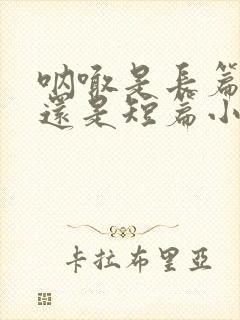 呐喊是長篇
還是短篇小
卡拉布里亞